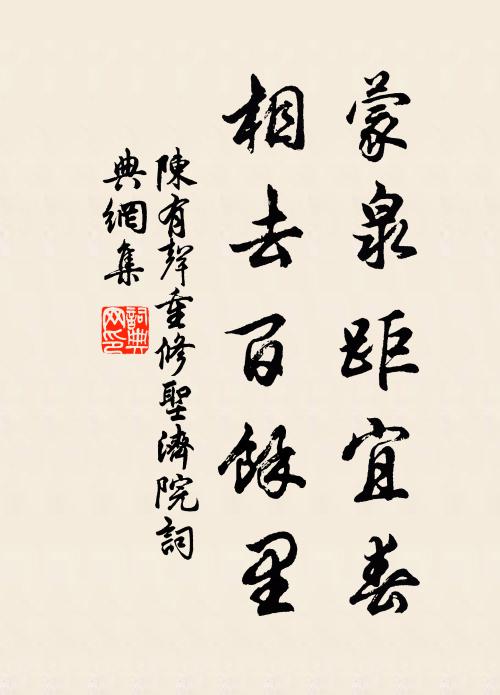 蒙泉距宜春
相去百餘里
陳有聲重修聖濟院詞
典網集
詞典网印